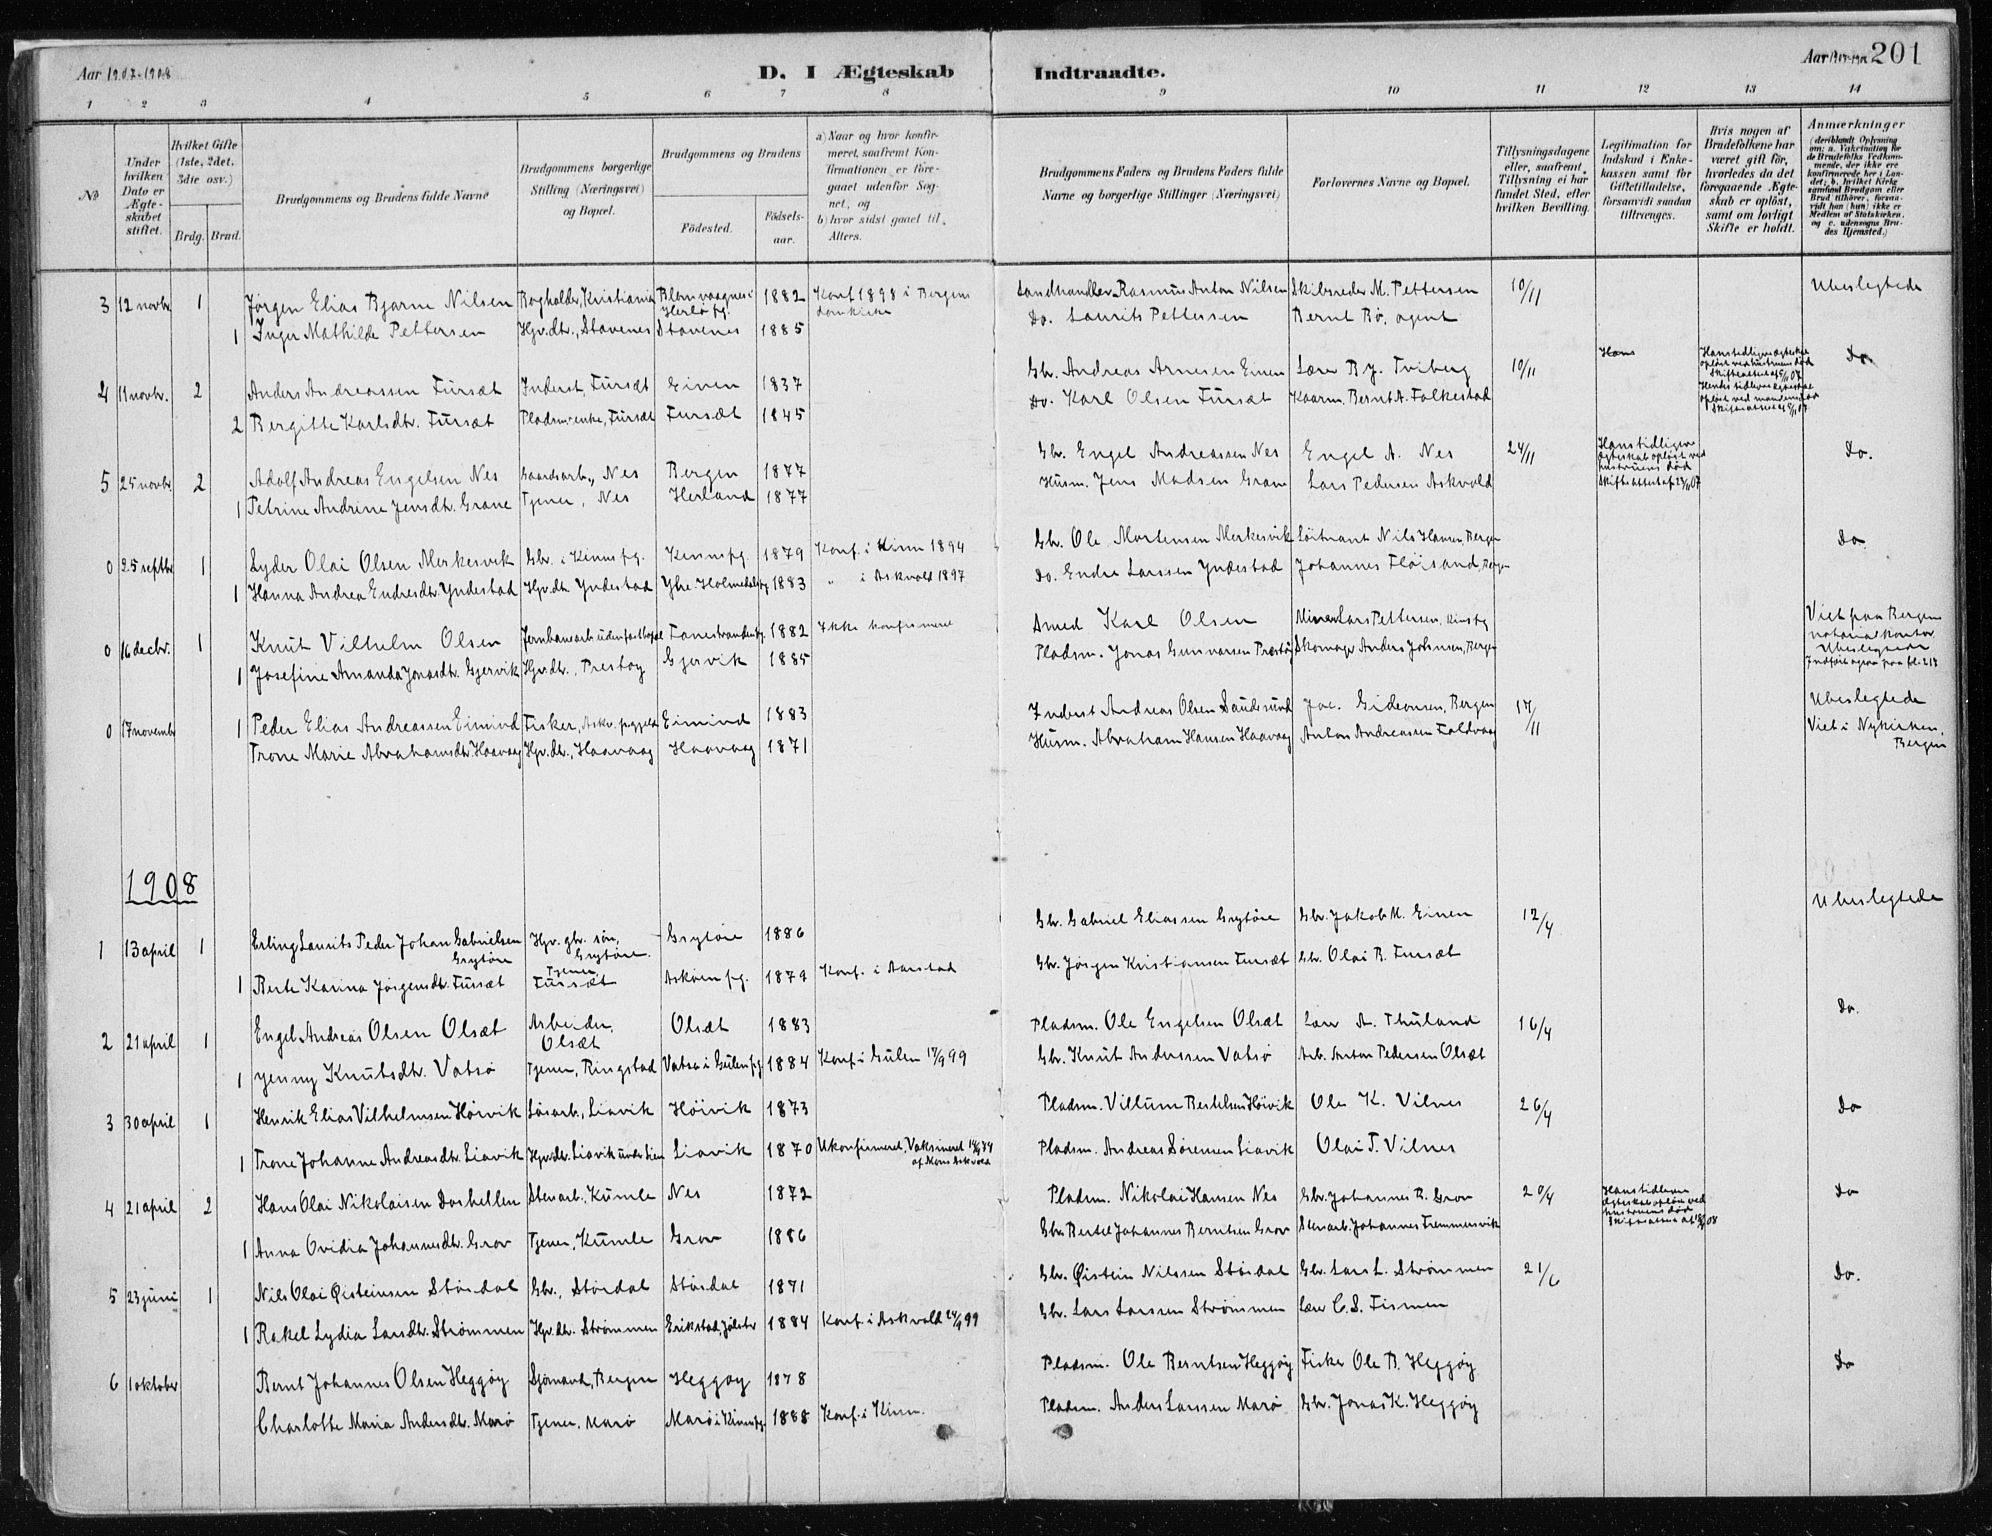 Aar 1907-1908
D. I Ægteskab
Indtraadte.
Aar 1907-1908
201
1 2 3 4 5 6 7 8 9 10 11 12 13 14
No
Under hvilken Dato er Ægteskabet stiftet.
Hvilket Gifte (1ste, 2det, 3die osv.)
Brdg. Brud.
Brudgommens og Brudens fulde Navne
Brudgommens borgerlige Stilling (Næringsvei) og Bopæl.
Brudgommens og Brudens
Födested.
Födsels-aar.
a) Naar og hvor konfirmeret, saafremt Konfirmationen er foregaaet udenfor Sognet, og
b) hvor sidst gaaet til Alters.
Brudgommens Faders og Brudens Faders fulde Navne og borgerlige Stillinger (Næringsvei)
Forlovernes Navne og Bopæl.
Tillysningsdagene eller, saafremt Tillysning ei har fundet Sted, efter hvilken Bevilling.
Legitimation for Indskud i Enkekassen samt for Giftetilladelse, forsaavidt saadan tiltrænges.
Hvis nogen af Brudefolkene har været gift før, hvorledes da det foregaaende Ægteskab er opløst, samt om lovligt Skifte er holdt.
Anmærkninger
(deriblandt Oplysning om: a. Vakcination for de Brudefolks Vedkommende, der ikke ere konfirmerede her i Landet; b. hvilket Kirkesamfund Brudgom eller Brud tilhører, forsaavidt han (hun) ikke er Medlem af Statskirken, og c. udensogns Brudes Hjemsted.)
3 12 novbr. 1 Jørgen Elias Bjarne Nilsen Bogholder, Kristiania Blomvaagnes i Herlø pg. 1882 Konf. 1898 i Bergens domkirke Landhandler Rasmus Anton Nilsen Skibsreder M. Pettersen 10/11 Ubeslegtede
1 Inga Mathilde Pettersen Hjv. dtr., Stavenes Stavenes 1885 Do. Laurits Pettersen Bernt Bø, agent
4 11 novbr. 2 Anders Andreassen Fursæt Inderst, Fursæt Einen 1837 Gbr. Andreas Arnesen Einen Lærer B. J. Tviberg 10/11 Hans Hans tidligere ægteskab opløst ved hustruens død Do.
2 Bergitte Karlsdtr. Fursæt Pladsm. enke, Fursæt Fursæt 1845 Do. Karl Olsen Fursæt Kaarm. Bernt A. Folkestad
5 25 novbr. 2 Adolf Andreas Engelsen Nes Gaardsarb., Nes Bergen 1877 Gbr. Engel Andreassen Nes Engel A. Nes 24/11 Hans tidligere ægteskab opløst ved hustruens død Skifteattest af 23/11 07 Do.
1 Petrine Andrine Jensdtr. Grane Tjener, Nes Herland 1877 Husm. Jens Madsen Grane Lars Pedersen Askvold
0 25 septbr. 1 Lyder Olai Olsen Merkesvik Gbr. i Kinn pg. Kinn pg. 1879 Konf. i Kinn 1894 Gbr. Ole Mortensen Merkesvik Løitnant Nils Hansen, Bergen Do
1 Hanna Andrea Endresdtr. Yndestad Hjv. dtr. Yndestad Ytre Holmedals pg 1883 " i Askvold 1897 Do. Endre Larssen Yndestad Johannes Fløisand, Bergen
0 16 decbr. 1 Knut Vilhelm Olsen Jernbanearb. uden fast bopæl 1882 Ikke konfirmeret Smed Karl Olsen Minerer Lars Pettersen, Kinn pg Viet paa Bergens notarialkontor Ubeslegtede
1 Josefine Amanda Jonasdtr. Gjervik Hjv. dtr., Prestøy Gjervik 1885 Pladsm. Jonas Gunnarsen Prestøy Skomager Anders Johnsen, Bergen
0 17 novembr 1 Peder Elias Andreassen Eimind Fisker, Askv. pgjeld Eimind 1883 Inderst Andreas Olsen Saudesund Jac. Gideonsen, Bergen 17/11 Ubeslegtede
Trone Marie Abrahamsdtr. Haavaag Hjv. dtr., Haavaag Haavaag 1871 Husm. Abraham Hansen Haavaag Anton Andreassen Foldvaag Viet i Nykirken, Bergen
1908
1 13 april 1 Erling Laurits Peder Johan Gabrielsen Grytøie Hjv. gbr. søn, Grytøie. Grytøie 1886 Gbr. Gabriel Eliassen Grytøie Gbr. Jakob M. Einen 12/4 Ubeslegtede
1 Berte Karina Jørgensdtr. Fursæt Tjener Fursæt Askøen pg. 1879 Konf. i Aarstad Gbr. Jørgen Kristiansen Fursæt Gbr. Olai B. Fursæt
2 21 april 1 Engel Andreas Olsen Olsæt Arbeider, Olsæt Olsæt 1883 Pladsm. Ole Engelsen Olsæt Lærer A. Thuland 16/4 Do.
1 Jenny Knutsdtr. Vatsø Tjener, Ringstad Vatsø i Gulen pg. 1884 Konf. i Gulen 17/9 99 Gbr. Knut Anderssen Vatsø Arb. Anton Pedersen Olsæt
3 30 april 1 Henrik Elias Vilhelmsen Høivik Løsarb., Liavik Høivik 1873 Pladsm. Villum Bertelsen Høivik Ole K. Vilnes 26/4 Do
1 Trone Johanne Andreasdtr. Liavik Hjv. dtr. Liavik under Lien Liavik 1870 Ukonfirmeret, Vaksineret af Mons Askvold Pladsm. Andreas Sørensen Liavik Olai T. Vilnes
4 21 april 2 Hans Olai Nikolaisen Doshellen Stenarb., Kumle Nes 1872 Pladsm. Nikolai Hansen Nes Gbr. Johannes B. Grov 20/4 Hans tidligere ægteskab opløst ved hustruens død Do
1 Anna Ovidia Johannesdtr. Grov Tjener, Kumle Grov 1886 Gbr. Bertel Johannes Berntsen Grov Stenarb. Johannes Tremmersvik
5 23 juni 1 Nils Olai Øisteinsen Størdal Gbr., Størdal Størdal 1871 Gbr. Øistein Nilssen Størdal Gbr. Lars L. Strømmen 21/6 Do.
1 Rakel Lydia Larsdtr. Strømmen Hjv. dtr. Strømmen Erikstad, Jølster 1884 Konf. i Askvold 24/9 99 Gbr. Lars Larssen Strømmen Lærer C. S. Fismen
6 1 oktober Bernt Johannes Olsen Heggøy Sjømand, Bergen Heggøy 1878 Pladsm. Ole Berntsen Heggøy Fisker Ole B. Heggøy Do
Charlotte Maria Andersdtr. Marø Tjener, Marø Marø i Kinn pg. 1888 Konf. i Kinn. Pladsm. Anders Larssen Marø Gbr. Jonas K. Heggøy